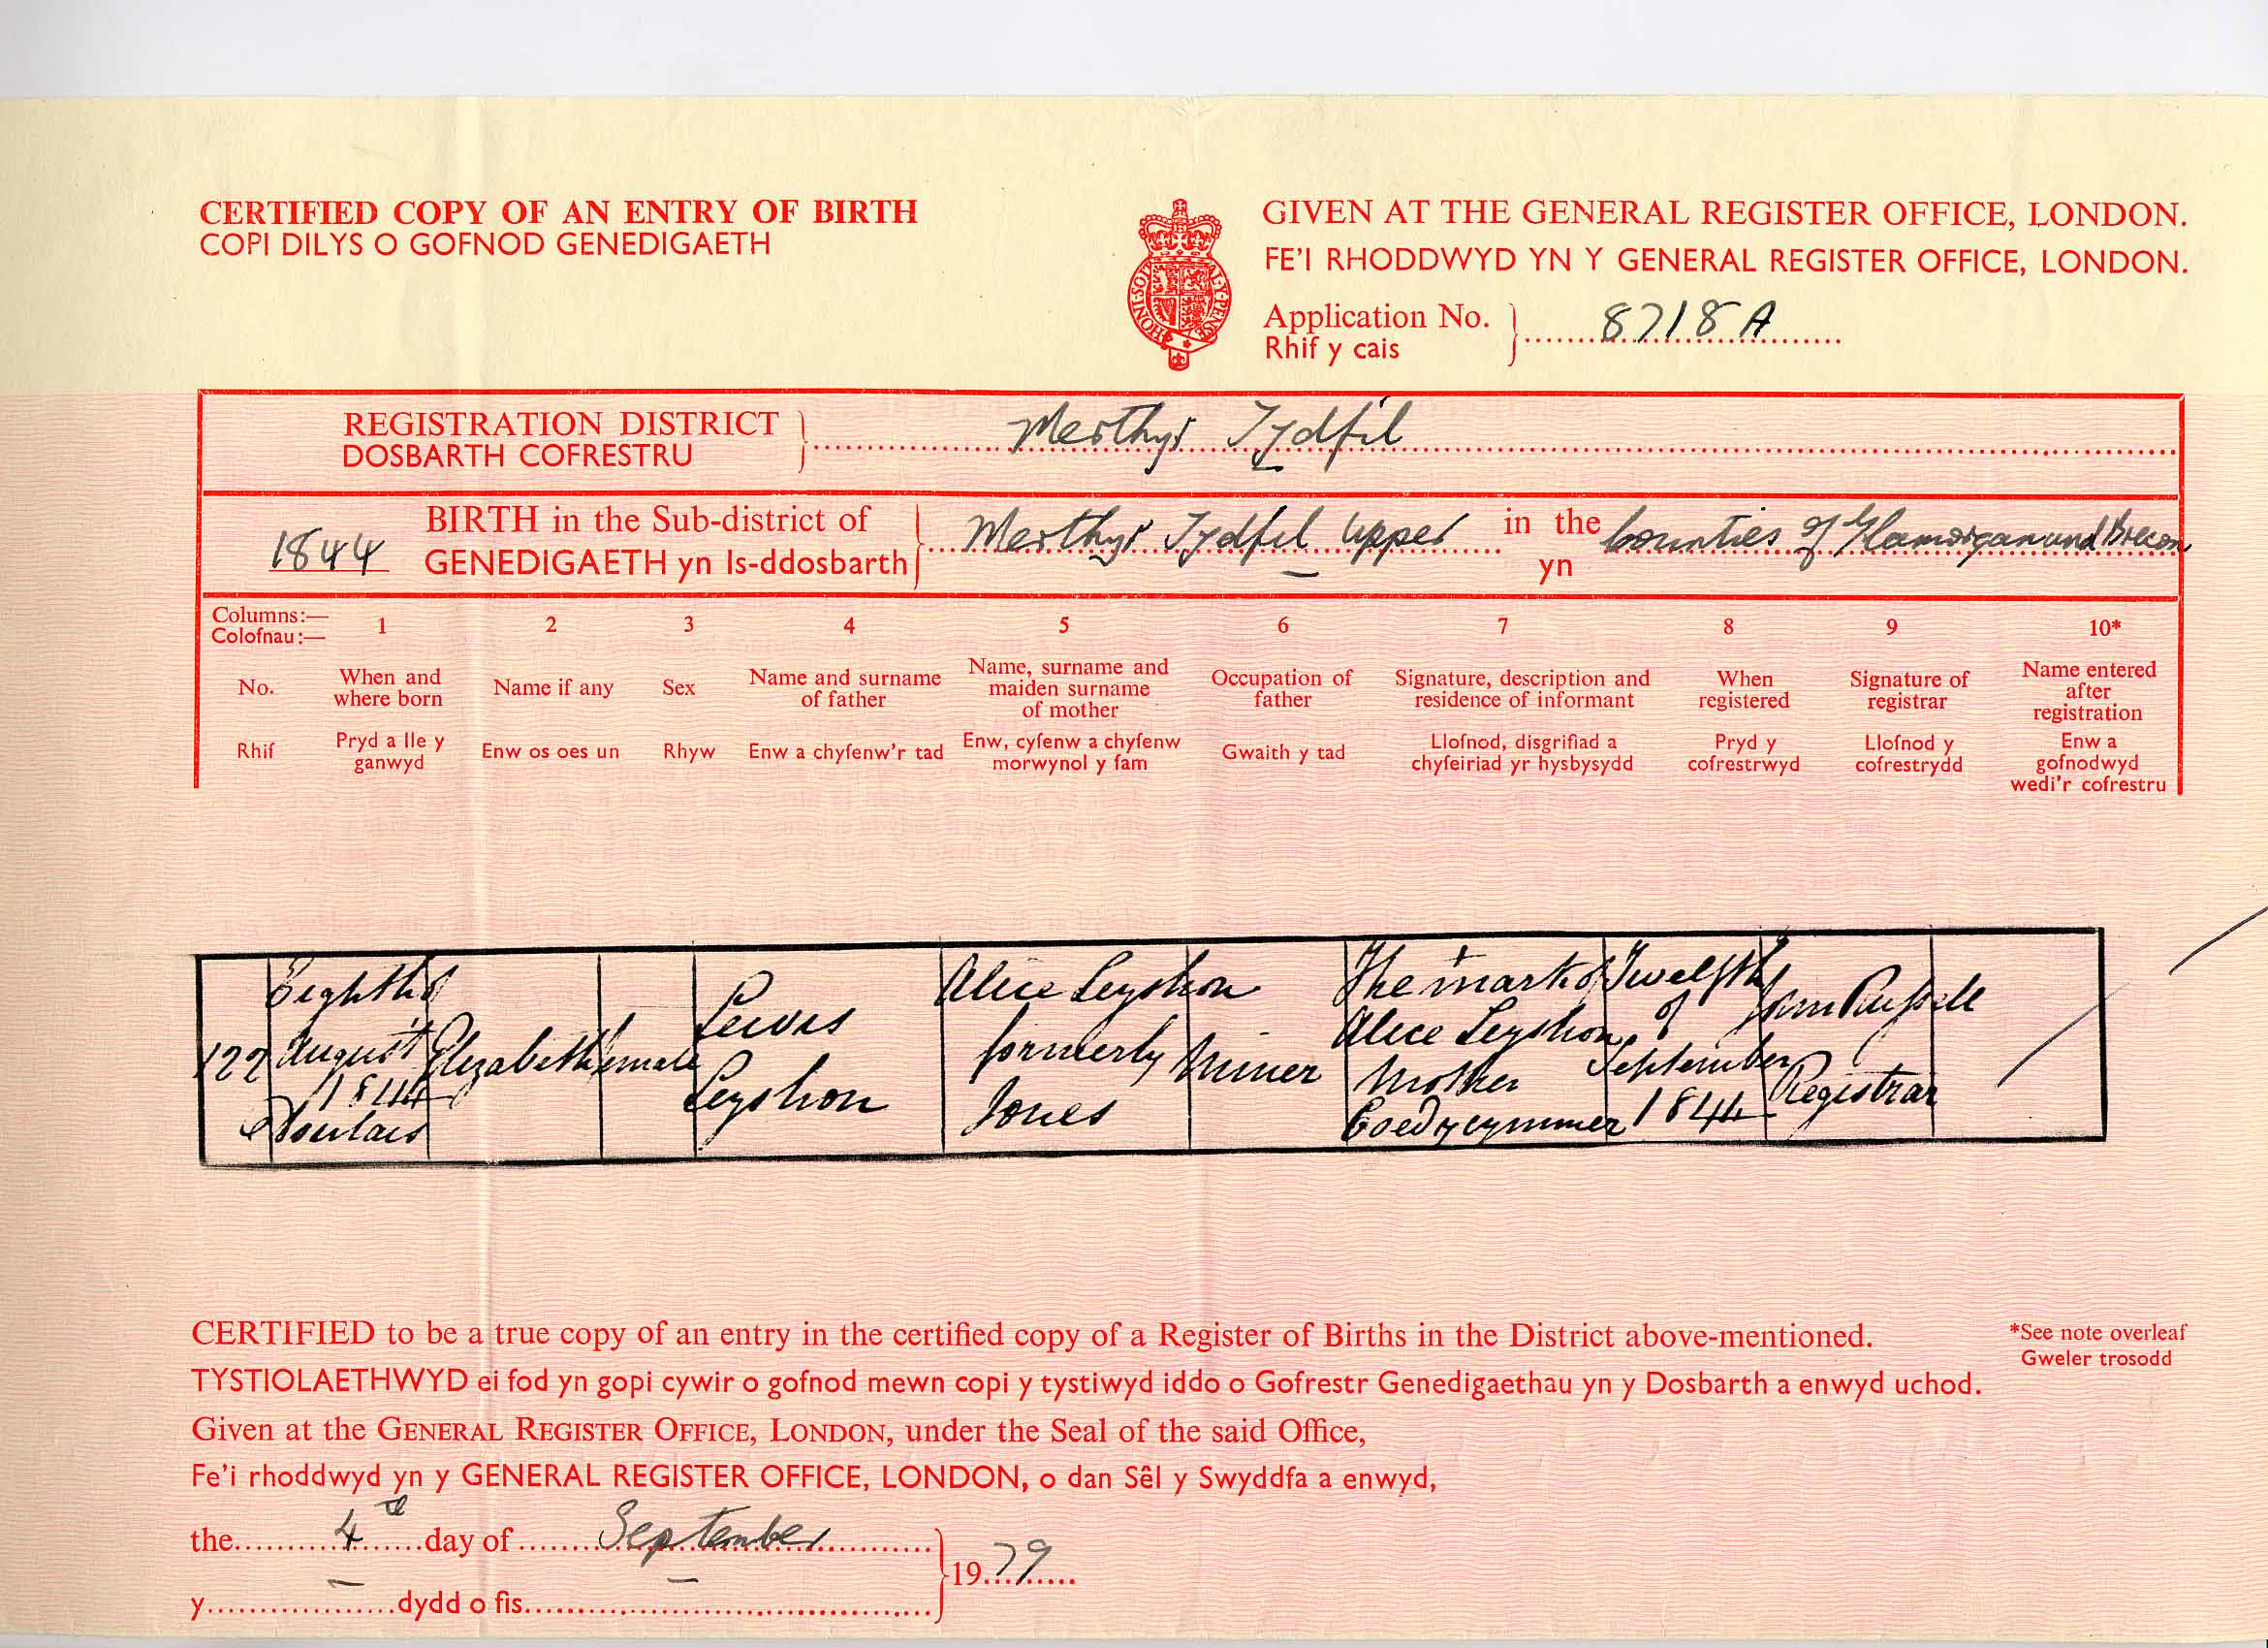 CERTIFIED COPY OF AN ENTRY OF BIRTH
COPI DILYS O GOFNOD GENEDIGAETH
HONI·SOIT
AL·Y·PENSE
GIVEN AT THE GENERAL REGISTER OFFICE, LONDON.
FE'I RHODDWYD YN Y GENERAL REGISTER OFFICE, LONDON.
Application No.
Rhif y cais
8718 A
REGISTRATION DISTRICT
DOSBARTH COFRESTRU
Merthyr Tydfil
1844
BIRTH in the Sub-district of
GENEDIGAETH yn Is-ddosbarth
Merthyr Tydfil Upper
in the
yn
Counties of Glamorgan and Brecon
Columns:—
Colofnau:—
1 2 3 4 5 6 7 8 9 10*
No.
Rhif
When and
where born
Pryd a lle y
ganwyd
Name if any
Enw os oes un
Sex
Rhyw
Name and surname
of father
Enw a chyfenw'r tad
Name, surname and
maiden surname
of mother
Enw, cyfenw a chyfenw
morwynol y fam
Occupation of
father
Gwaith y tad
Signature, description and
residence of informant
Llofnod, disgrifiad a
chyfeiriad yr hysbysydd
When
registered
Pryd y
cofrestrwyd
Signature of
registrar
Llofnod y
cofrestrydd
Name entered
after
registration
Enw a
gofnodwyd
wedi'r cofrestru
122
Eighth of
August
1844
Dowlais
Elizabeth
Female
Lewis
Leyshon
Alice Leyshon
formerly
Jones
Miner
The mark of
Alice Leyshon
Mother
Coedycymmer
Twelfth
of
September
1844
John Russell
Registrar
CERTIFIED to be a true copy of an entry in the certified copy of a Register of Births in the District above-mentioned.
*See note overleaf
Gweler trosodd
TYSTIOLAETHWYD ei fod yn gopi cywir o gofnod mewn copi y tystiwyd iddo o Gofrestr Genedigaethau yn y Dosbarth a enwyd uchod.
Given at the GENERAL REGISTER OFFICE, LONDON, under the Seal of the said Office,
Fe'i rhoddwyd yn y GENERAL REGISTER OFFICE, LONDON, o dan Sêl y Swyddfa a enwyd,
the 4th day of September
1979
y dydd o fis